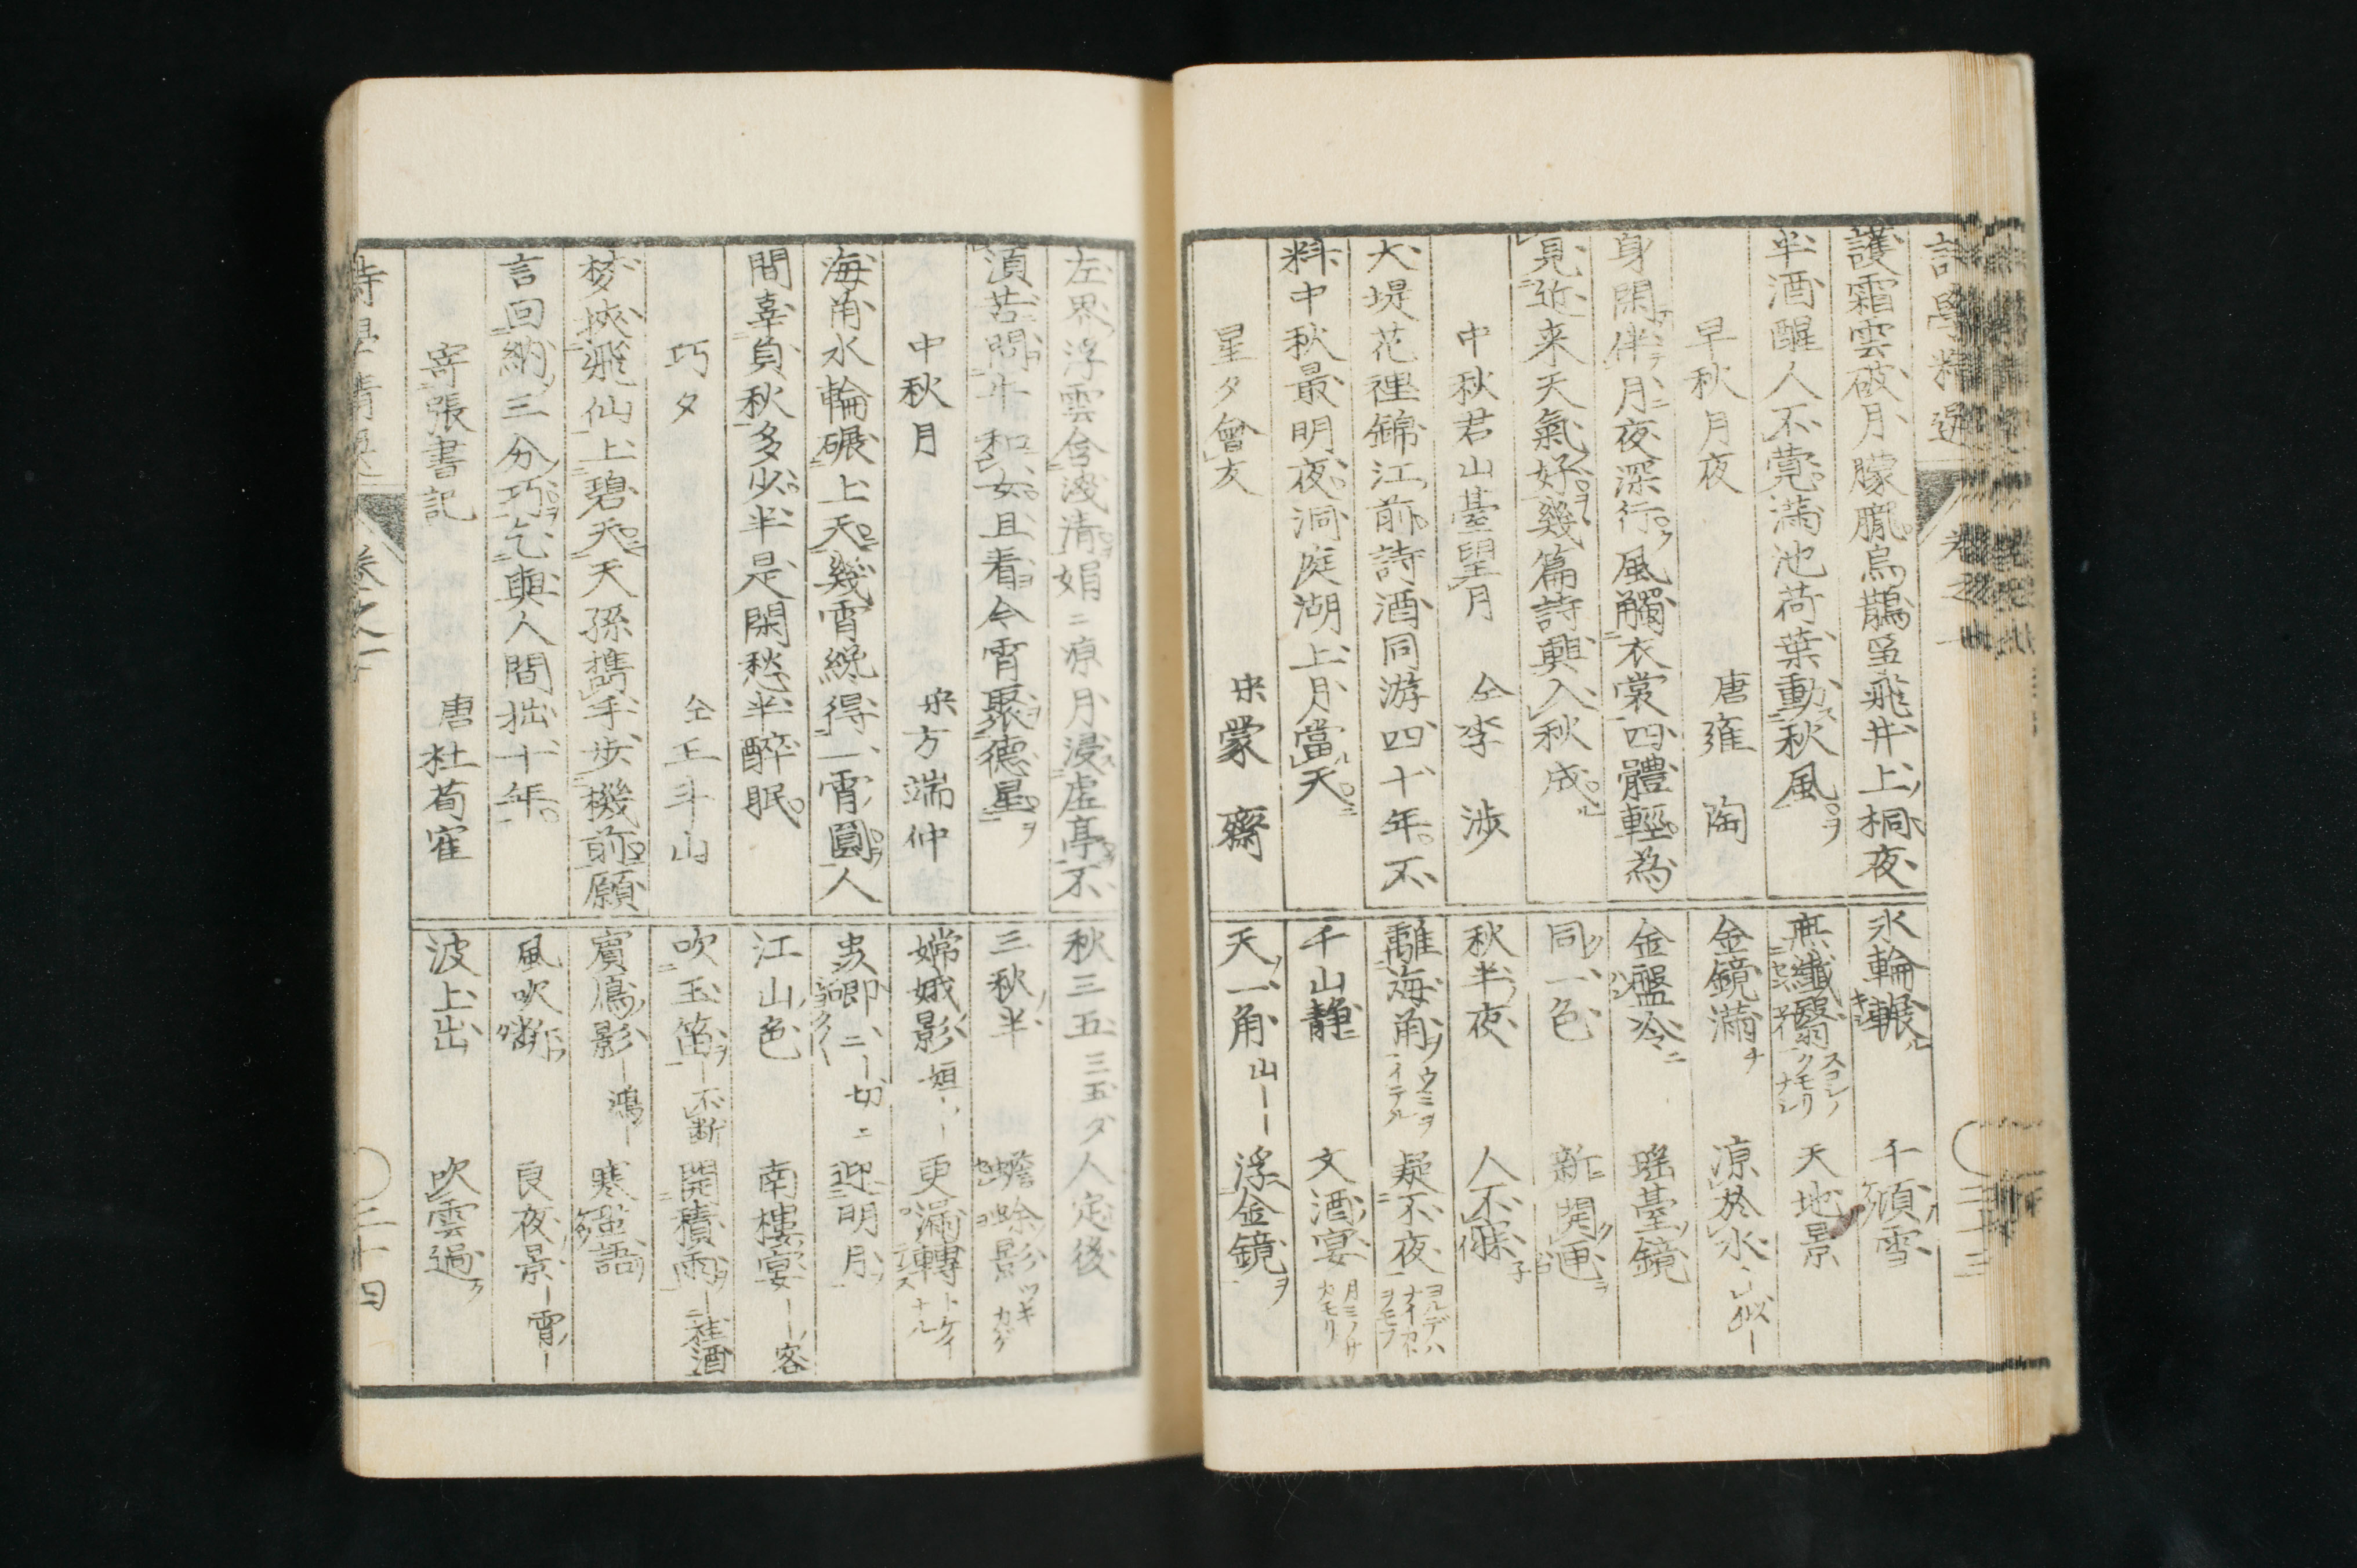 護霜雲破月朦朧烏鵲爭飛井上桐夜
半酒醒人不覺滿池荷葉動秋風
早秋月夜　唐雍陶
身閑伴月夜深行風觸衣裳四體輕為
見近来天氣好幾篇詩興入秋成
中秋君山臺望月　仝李渉
大堤花裡錦江前詩酒同游四十年不
料中秋最明夜洞庭湖上月當天
星夕會友　宋蒙齋
氷輪輾　千頃雪
無纖翳 スコシノクモリナシ　天地景
金鏡滿　凉於水
金盤冷　瑶臺鏡
同一色　新開匣
秋半夜　人不寐
離海角　疑不夜 ヨルデハナイカトヲモフ
千山靜　文酒宴
天一角 山－－　浮金鏡
左界浮雲分淺清娟〻凉月浸虚亭不
須苦問牛和女且看今宵聚德星
中秋月　宋方端仲
海角氷輪碾上天幾宵纔得一宵圓人
間辜負秋多少半是閑愁半醉眠
巧夕　仝王斗山
梦挾飛仙上碧天天孫携手歩機前願
言回納三分巧乞與人間拙十年
寄張書記　唐杜荀隺
秋三五 三五夕　人定後
三秋半　蟾蜍影 ツキカゲ
嫦娥影 姮－－　更漏轉 トケイナル
蛩喞〻 －切〻　迎明月
江山色　南樓宴 －－客
吹玉笛 －不断　開積雨 －〻桂酒
賓鴈影 －鴻－　寒蛩語
風吹斷　良夜景 －宵－
波上出　吹雲過
詩學精選　卷之一　二十四